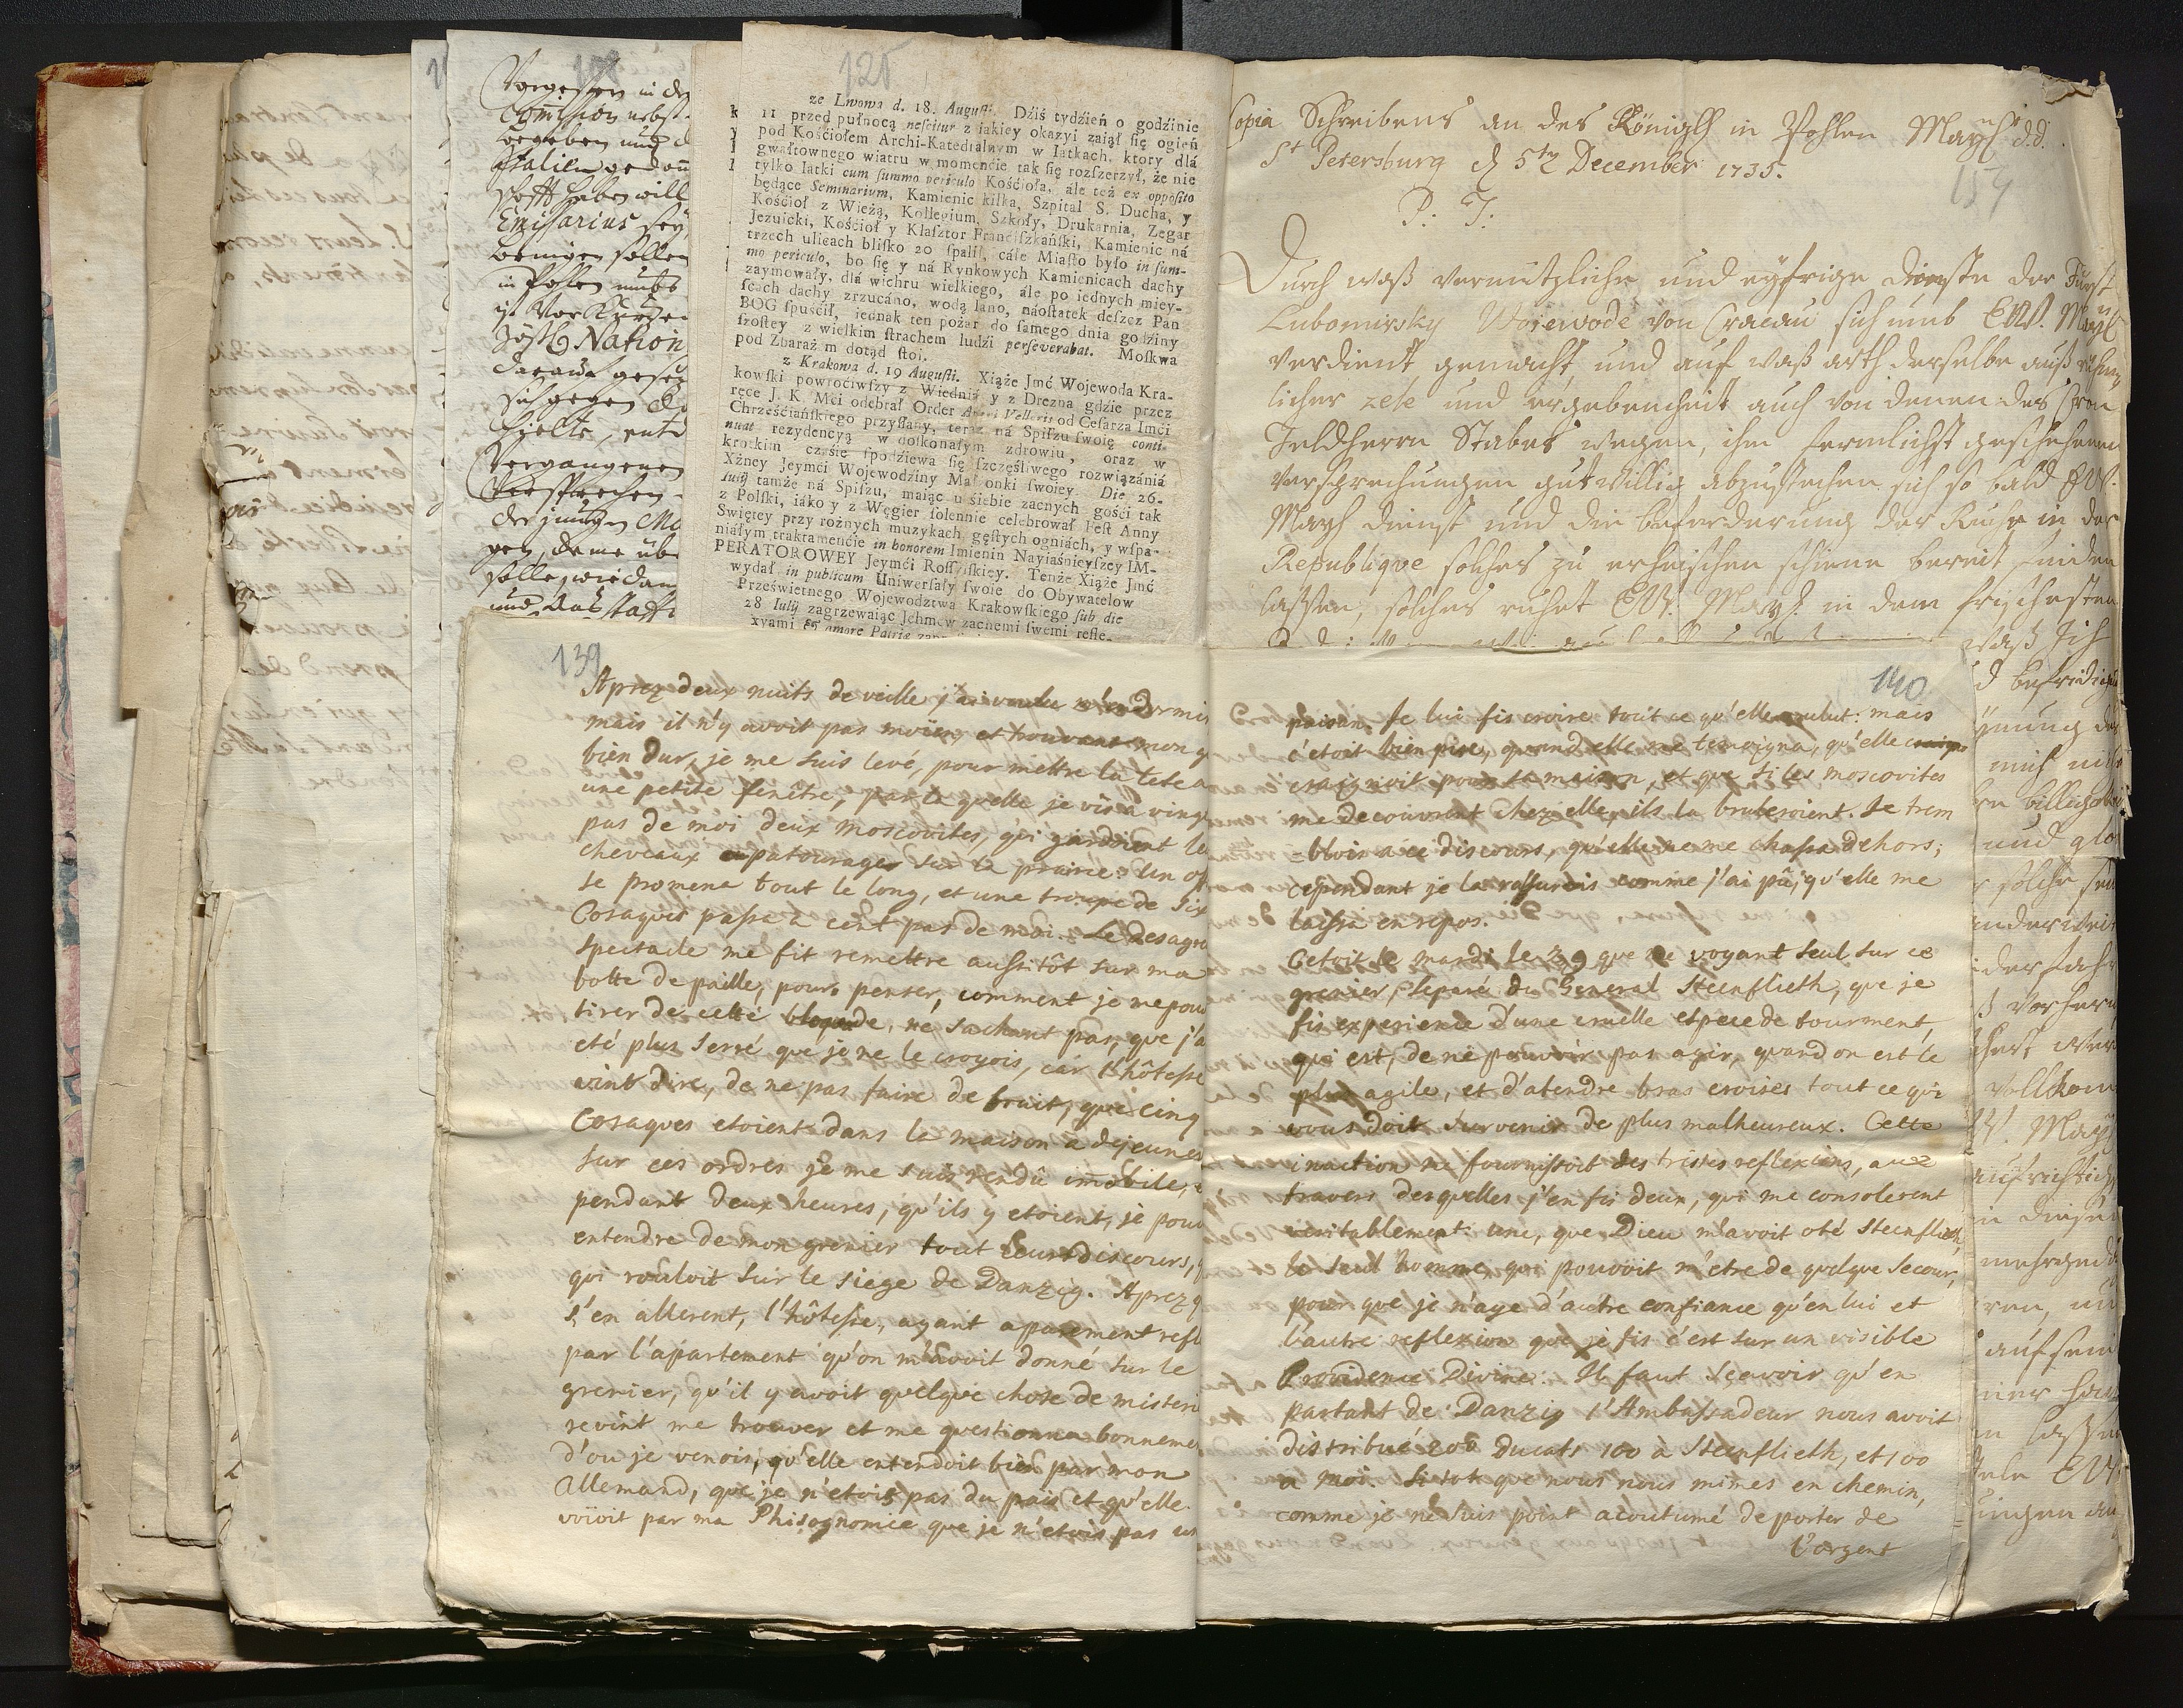 Vorgestern in der
Commission nebst
begeben und
Italien
hofft haben will
Emissarius sey,
wenigen sollen
in Pohlen
ist vor
Nation
darauf
sich gegen
hielte,
Vergangenen
versprechen
der jungen
gen, deme übe
solle, wie dan
und das
125
ze Lwowa d. 18. Augusti. Dźiś tydźień o godźinie
11 przed pułnocą nescitur z iakiey okazyi zaiął się ogień
pod Kośćiołem Archi-Katedralnym w Iatkach, ktory dlá
gwałtownego wiatru w momenćie tak się rozſzerzył, że nie
tylko Iatki cum ſummo periculo Kośćioła, ale też ex oppoſito
będące Seminarium, Kamienic kilka, Szpital S. Ducha, y
Kośćioł z Wieżą, Kollegium, Szkoły, Drukarnia, Zegar
Jezuicki, Kośćioł y Klaſztor Franciſzkańſki, Kamienic ná
trzech ulicach bliſko 20 ſpalił, cáłe Miaſto było in ſum-
mo periculo, bo się y ná Rynkowych Kamienicach dachy
zaymowały, dlá wichru wielkiego, ále po iednych miey-
ſcach dachy zrzucáno, wodą lano, náoſtatek deſzcz Pan
BOG ſpuśćił, iednak ten pożar do ſamego dnia godźiny
ſzoſtey z wielkim ſtrachem ludźi perſeverabat. Moſkwa
pod Zbaraż m dotąd ſtoi.
z Krakowa d. 19 Auguſti. Xiąże Jmć Wojewoda Kra-
kowſki powroćiwſzy z Wiednia y z Drezna gdźie przez
ręce J. K. Mći odebrał Order Aurei Velleris od Ceſarza Imći
Chrześćiańſkiego przyſłany, teraz ná Spiſzu ſwoię conti-
nuat rezydencyą w doſkonałym zdrowiu, oraz w
krotkim czáśie ſpodźiewa się ſzczęśliwego rozwiązániá
Xżney Jeymći Wojewodźiny Małżonki ſwoiey. Die 26.
Iulij tamże ná Spiſzu, maiąc u śiebie zacnych gośći tak
z Polſki, iáko y z Węgier ſolennie celebrował Feſt Anny
Swiętey przy rożnych muzykach gęſtych ogniách, y wſpa-
niałym traktamenćie in honorem Imienin Nayiaśnieyſzey IM-
PERATOROWEY Jeymći Roſſyiſkiey. Tenże Xiąże Jmć
wydał in publicum Uniwerſały ſwoie do Obywatelow
Prześwietnego Wojewodztwa Krakowſkiego ſub die
28 Iulij zagrzewaiąc Jchmćw zachemi ſwemi refle-
xyami & amore Patriæ
Copia Schreibens an des Königlh in Pohlen Mayth d.d.
St Petersburg d 5ten December 1735.
154
P. T.
Durch waß vernützliche und eyfrige dienste der Fürst
Lubomirsky Woiewode von Cracau sich umb EW. Mayt
verdient gemacht, und auf waß arth derselbe auß
licher zele und ergebenheit auch von denen des Cron
Feldherrn Stabes wegen, ihm fermlichst geschehenen
versprechungen gutwillig abzustehen sich so bald EW.
Mayh dienst und die beforderung der Ruhe in der
Republique solches zu erheischen schiene bereit finden
laßen, solches ruhet EW. Mayh. in dem frischesten
139
Aprez deux nuits de veille j'ai voulu m'endormir
mais il n'y avoit pas moien, et trouvant mon g
bien dur, je me suis levé, pour mettre la tete a
une petite fenêtre, par la quelle je vis a vingt
pas de moi deux Moscovites, qui gardoient le
cheveaux au paturages sur la prairie: Un of
se promena tout le long, et une troupe de six
Cosaques passa à cent pas de moi. Le desagre
spectacle me fit remettre aussitôt sur ma
botte de paille, pour penser, comment je me pou
tirer de cette bloquade, ne sachant pas, que j'a
eté plus serré que je ne le croyois, car l'hôtesse
vint dire, de ne pas faire de bruit, que cinq
Cosaques etoient dans la maison a dejeuner
sur ces ordres je me suis rendû imobile,
pendant deux heures, qu'ils y etoient, je pou
entendre de mon grenier tout leurs discours,
qui rouloit sur le siege de Danzig. Aprez q
s'en allerent, l'hôtesse, ayant aparement refl
par l'apartement qu'on m'avoit donné sur le
grenier, qu'il y avoit quelque chose de misteri
revint me trouver et me questionna bonneme
d'ou je venois, qu'elle entendoit bien par mon
allemand, que je n'etois pas du païs et qu'elle
voioit par ma Phisognomie que je n'etois pas un
140
paisan. Je lui fis croire tout ce qu'elle voulut: mais
c'etoit bien pire, quand elle me temoigna, qu'elle
craignoit pour sa maison, et que si les moscovites
me decouvrent chez elle, ils la bruleroient. Je trem
-blois a ce discours, qu'elle ne me chassa dehors;
cependant je la rassurois comme j'ai pû, qu'elle me
laissa en repos.
Cetoit le mardi le 29 que me voyant seul sur ce
grenier, separé du General Steenflieth, que je
fis experience d'une cruelle espece de tourment,
qui est, de ne pouvoir pas agir, quand on est le
plus agile, et d'atendre bras croisés tout ce qui
vous doit survenir de plus malheureux. Cette
inaction me fournissoit des tristes reflexions, au
travers desquelles j'en fis deux, qui me consolerent
veritablement: une, que Dieu m'avoit oté Steenflieth,
le seul homme, qui pouvoit m'etre de quelque secour,
pour que je n'aye d'autre confiance qu'en lui et
l'autre reflexion que je fis c'est sur un visible
Providence Divine: Il faut sçavoir qu'en
partant de Danzig l'Ambassadeur nous avoit
distribué 200 Ducats 100 à Steenflieth, et 100
a moi. Si tot que nous nous mimes en chemin,
comme je ne suis point acoutumé de porter de
l'argent
waß Ich
d befridig
mich
billig
und glo
solche
anderweit
vorher
vollkom
EW. May
aufrichtig
in diesen
auf sein
EW